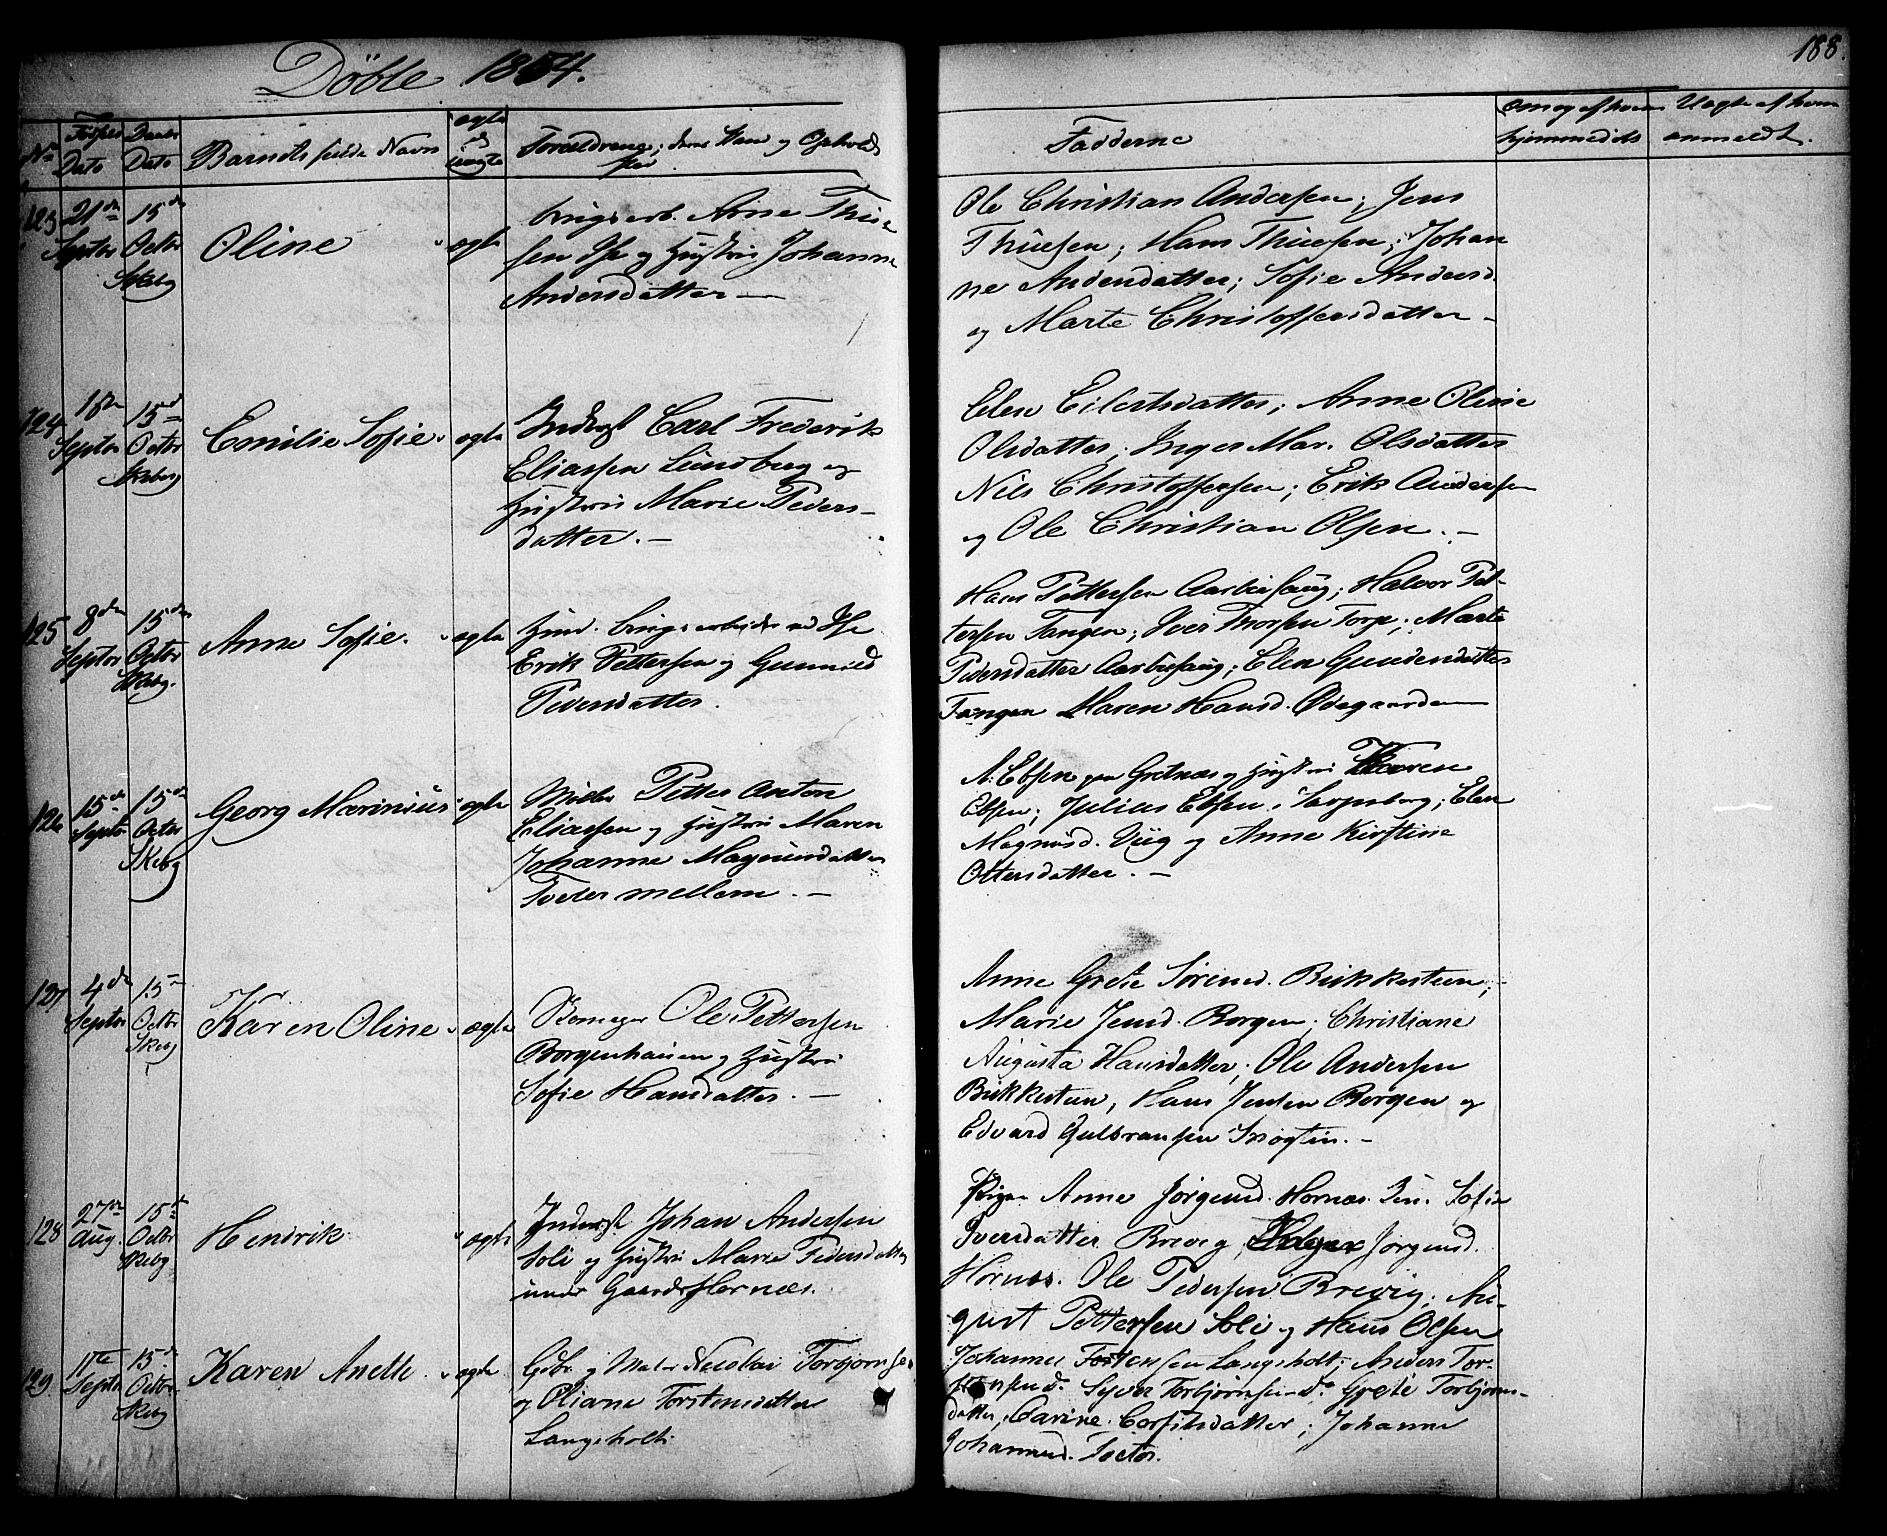 Døbte 1854.
188.
No
Fødsels Dato
Daabs Dato
Barnets fulde Navn
ægte
Forældrenes
Fadderne
hjemmedøbt
anmeldt.
123
21de Septbr
15de Octbr Skebg
Oline
ægte
Arne Thue-
sen og Hustru Johanne
Andersdatter —
Ole Christian Andersen; Jens
Thuesen; Hans Thuesen; Johan
ne Andersdatter; Sofie Andersd.
og Marte Christoffersdatter —
124
Septbr
15de Octbr Skebg
Emilie Sofie
ægte
Inderst Carl Frederik
Eliassen Lundberg og
Hustru Marie Peders-
datter. —
Elen Eilertsdatter; Anne Oline
Olsdatter; Inger Mar. Olsdatter
Nils Christoffersen; Erik Andersen
og Ole Christian Olsen. —
125
8de Septbr
15de Octbr Skebg.
Anne Sofie.
ægte
Erik Pettersen og Gunnild
Pedersdatter.
Hans Pettersen; Halvor Pet-
tersen Tangen; Iver Thorsen Torp; Marte
Pedersdatter; Elen Gundersdatter
Tangen Maren Hansd. Ødegaarden
126
15de Septbr
15de Octbr Skebg
Georg Marinius
ægte
Møller Petter Anton
Eliassen og Hustru Maren
Johanne Magnusdatter
Tveter mellem. —
A: Ebsen paa Gretnæs og Hustru Karen
Ebsen; Julius Ebsen i Sarpsborg; Elen
Magnusd. Viig og Anne Kirstine
Ottersdatter. —
127
4de Septbr
15 Octbr Skebg
Karen Oline
ægte
Ole Pettersen
Borgenhausen og Hustru
Sofie Hansdatter. —
Anne Grete Sørensd. Birkkesteen;
Marie Jensd. Borgen; Christiane
Augusta Hansdatter; Ole Andersen
Birkkesteen, Hans Jensen Borgen og
Edvard Gulbransen —
128
27de Aug.
15de Octbr Skebg
Hendrik
ægte
Inderst Johan Andersen
Soli og Hustru Marie Pedersdatter
under Gaarden Hornæs.
Pigen Anne Jørgensd. Hornæs. Sofie
Iversdatter Brevig, Jørgensd.
Hornæs. Ole Pedersen Brevig; Au-
gust Pettersen Soli og Hans Olsen
129
11te Septbr
15de Octbr Skebg
Karen Anette
ægte
Gdbr og Maler Nicolai Torbjørnsen
og Oliane Torstensdatter
Langsholt.
Johannes Torstensen Langsholt; Anders Tor-
Syver Torbjørnsen do Grete Torbjørns-
datter; Carine Corfitsdatter; Johanne
Johannesd.